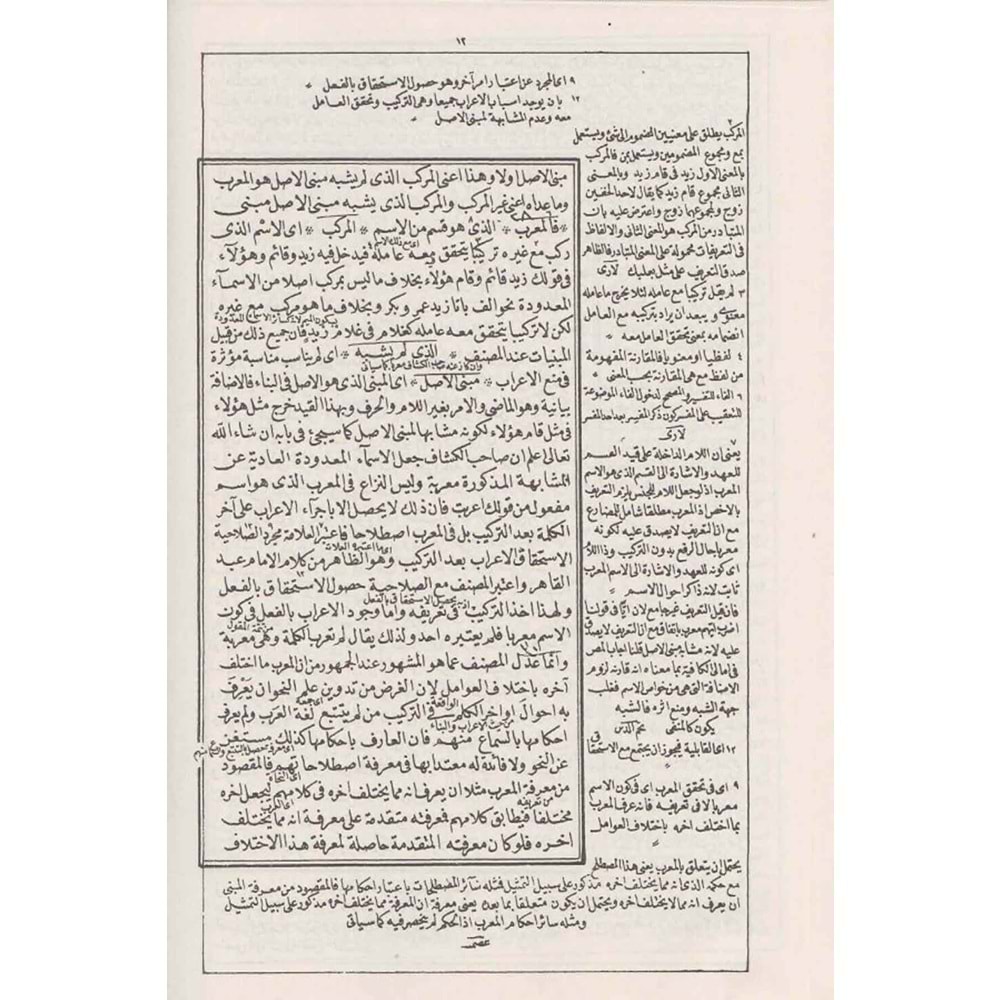 ١٢
٩ اى المجرد عن اعتبار امر آخر وهو حصول الاستحقاق بالفعل
١٢ بان يوجد اسباب الاعراب جميعا وهى التركيب وتحقق العامل
معه وعدم المشابهة لمبنى الاصل
مبنى الاصل اولا وهذا اعنى المركب الذى لم يشبه مبنى الاصل هو المعرب
وما عداه اعنى غير المركب والمركب الذى يشبه مبنى الاصل مبنى
* فالمعرب * الذى هو قسم من الاسم * المركب * اى الاسم الذى
ركب مع غيره تركيبا يتحقق معه عامله فيدخل فيه زيد وقائم وهؤلآء
فى قولك زيد قائم وقام هؤلاء بخلاف ما ليس بمركب اصلا من الاسمآء
المعدودة نحو الف با تا زيد عمر وبكر وبخلاف ما هو مركب مع غيره
لكن لا تركيبا يتحقق معه عامله كغلام فى غلام زيد فان جميع ذلك من قبيل
المبنيات عند المصنف * الذى لم يشبه * اى لم يناسب مناسبة مؤثرة
فى منع الاعراب * مبنى الاصل * اى المبنى الذى هو الاصل فى البناء فالاضافة
بيانية وهو الماضى والامر بغير اللام والحرف وبهذا القيد خرج مثل هؤلاء
فى مثل قام هؤلاء لكونه مشابها لمبنى الاصل كما سيجئ فى بابه ان شاء الله
تعالى اعلم ان صاحب الكشاف جعل الاسمآء المعدودة العادية عن
المشابهة المذكورة معربة وليس النزاع فى المعرب الذى هو اسم
مفعول من قولك اعربت فان ذلك لا يحصل الا باجرآء الاعراب على آخر
الكلمة بعد التركيب بل فى المعرب اصطلاحا فاعتبر العلامة مجرد الصلاحية
لاستحقاق الاعراب بعد التركيب وهو الظاهر من كلام الامام عبد
القاهر واعتبر المصنف مع الصلاحية حصول الاستحقاق بالفعل
ولهذا اخذ التركيب فى تعريفه واما وجود الاعراب بالفعل فى كون
الاسم معربا فلم يعتبره احد ولذلك يقال لم تعرب الكلمة وهى معربة
وانما عدل المصنف عما هو المشهور عند الجمهور من ان المعرب ما اختلف
آخره باختلاف العوامل لان الغرض من تدوين علم النحو ان يعرف
به احوال اواخر الكلم فى التركيب من لم يتتبع لغة العرب ولم يعرف
احكامها بالسماع منهم فان العارف باحكامها كذلك مستغن
عن النحو ولا فائدة له معتدا بها فى معرفة اصطلاحاتهم فالمقصود
من معرفة المعرب مثلا ان يعرف انه مما يختلف آخره فى كلامهم ليجعل آخره
مختلفا فيطابق كلامهم فمعرفته متقدمة على معرفة انه مما يختلف
اخره فلو كان معرفته المتقدمة حاصلة لمعرفة هذا الاختلاف
المركب يطلق على معنيين المضموم الى شئ ويستعمل
بمع ومجموع المضمومين ويستعمل بمن فالمركب
بالمعنى الاول زيد فى قام زيد وبالمعنى
الثانى مجموع قام زيد كما يقال لاحد الخفين
زوج ولمجموعهما زوج واعترض عليه بان
المتبادر من المركب هو المعنى الثانى والالفاظ
فى التعريفات محمولة على المعنى المتبادر فالظاهر
صدق التعريف على مثل بعلبك لارى
٣ لم يقل تركيبا مع عامله لئلا يخرج ما عامله
معنوى ويبعد ان يراد بتركيبه مع العامل
انضمامه بمعنى تحقق العامل معه
٤ لفظيا او معنويا فالمقارنة المفهومة
من لفظ مع هى المقارنة بحسب المعنى
٦ الفاء للتفسير والمصحح لدخول الفاء الموضوعة
للتعقيب على المفسر كون ذكر المفسر بعد حد المفسر
لارى
يعنى ان اللام الداخلة على قيد القسم
للعهد والاشارة الى القسم الذى هو الاسم
المعرب اذ لو جعل اللام للجنس يلزم التعريف
بالاخص اذ المعرب مطلقا شامل للمضارع
مع ان التعريف لا يصدق عليه لكونه
معربا حال الرفع بدون التركيب
اى كونه للعهد والاشارة الى الاسم المعرب
ثابت لانه ذاكر احوال الاسم
فان قيل التعريف غير جامع لان ايا فى قولنا
اضرب ايهم معرب باتفاق مع ان التعريف لا يصدق
عليه لانه مشابه مبنى الاصل قلنا اجاب المص
فى امالى الكافية بما معناه انه قارنه لزوم
الاضافة التى هى من خواص الاسم فغلب
جهة الشبه ومنع اثره فالشبه
يكون كالمنفى
١٢ اى القابلية فيجوز ان يجتمع مع الاستحقاق
٩ اى فى تحقق المعرب اى فى كون الاسم
معربا لا فى تعريفه فانه عرف المعرب
بما اختلف اخره باختلاف العوامل
يحتمل ان يتعلق بالمعرب يعنى هذا المصطلح
مع حكمه الذى انه مما يختلف اخره مذكور على سبيل التمثيل فمثله سائر المصطلحات باعتبار احكامها فالمقصود من معرفة المبنى
ان يعرف انه مما لا يختلف اخره ويحتمل ان يكون متعلقا بما بعده يعنى معرفة ان المعرفة مما يختلف اخره مذكور على سبيل التمثيل
ومثله سائر احكام المعرب اذ الحكم لم ينحصر فيه كما سيأتى
عصمت